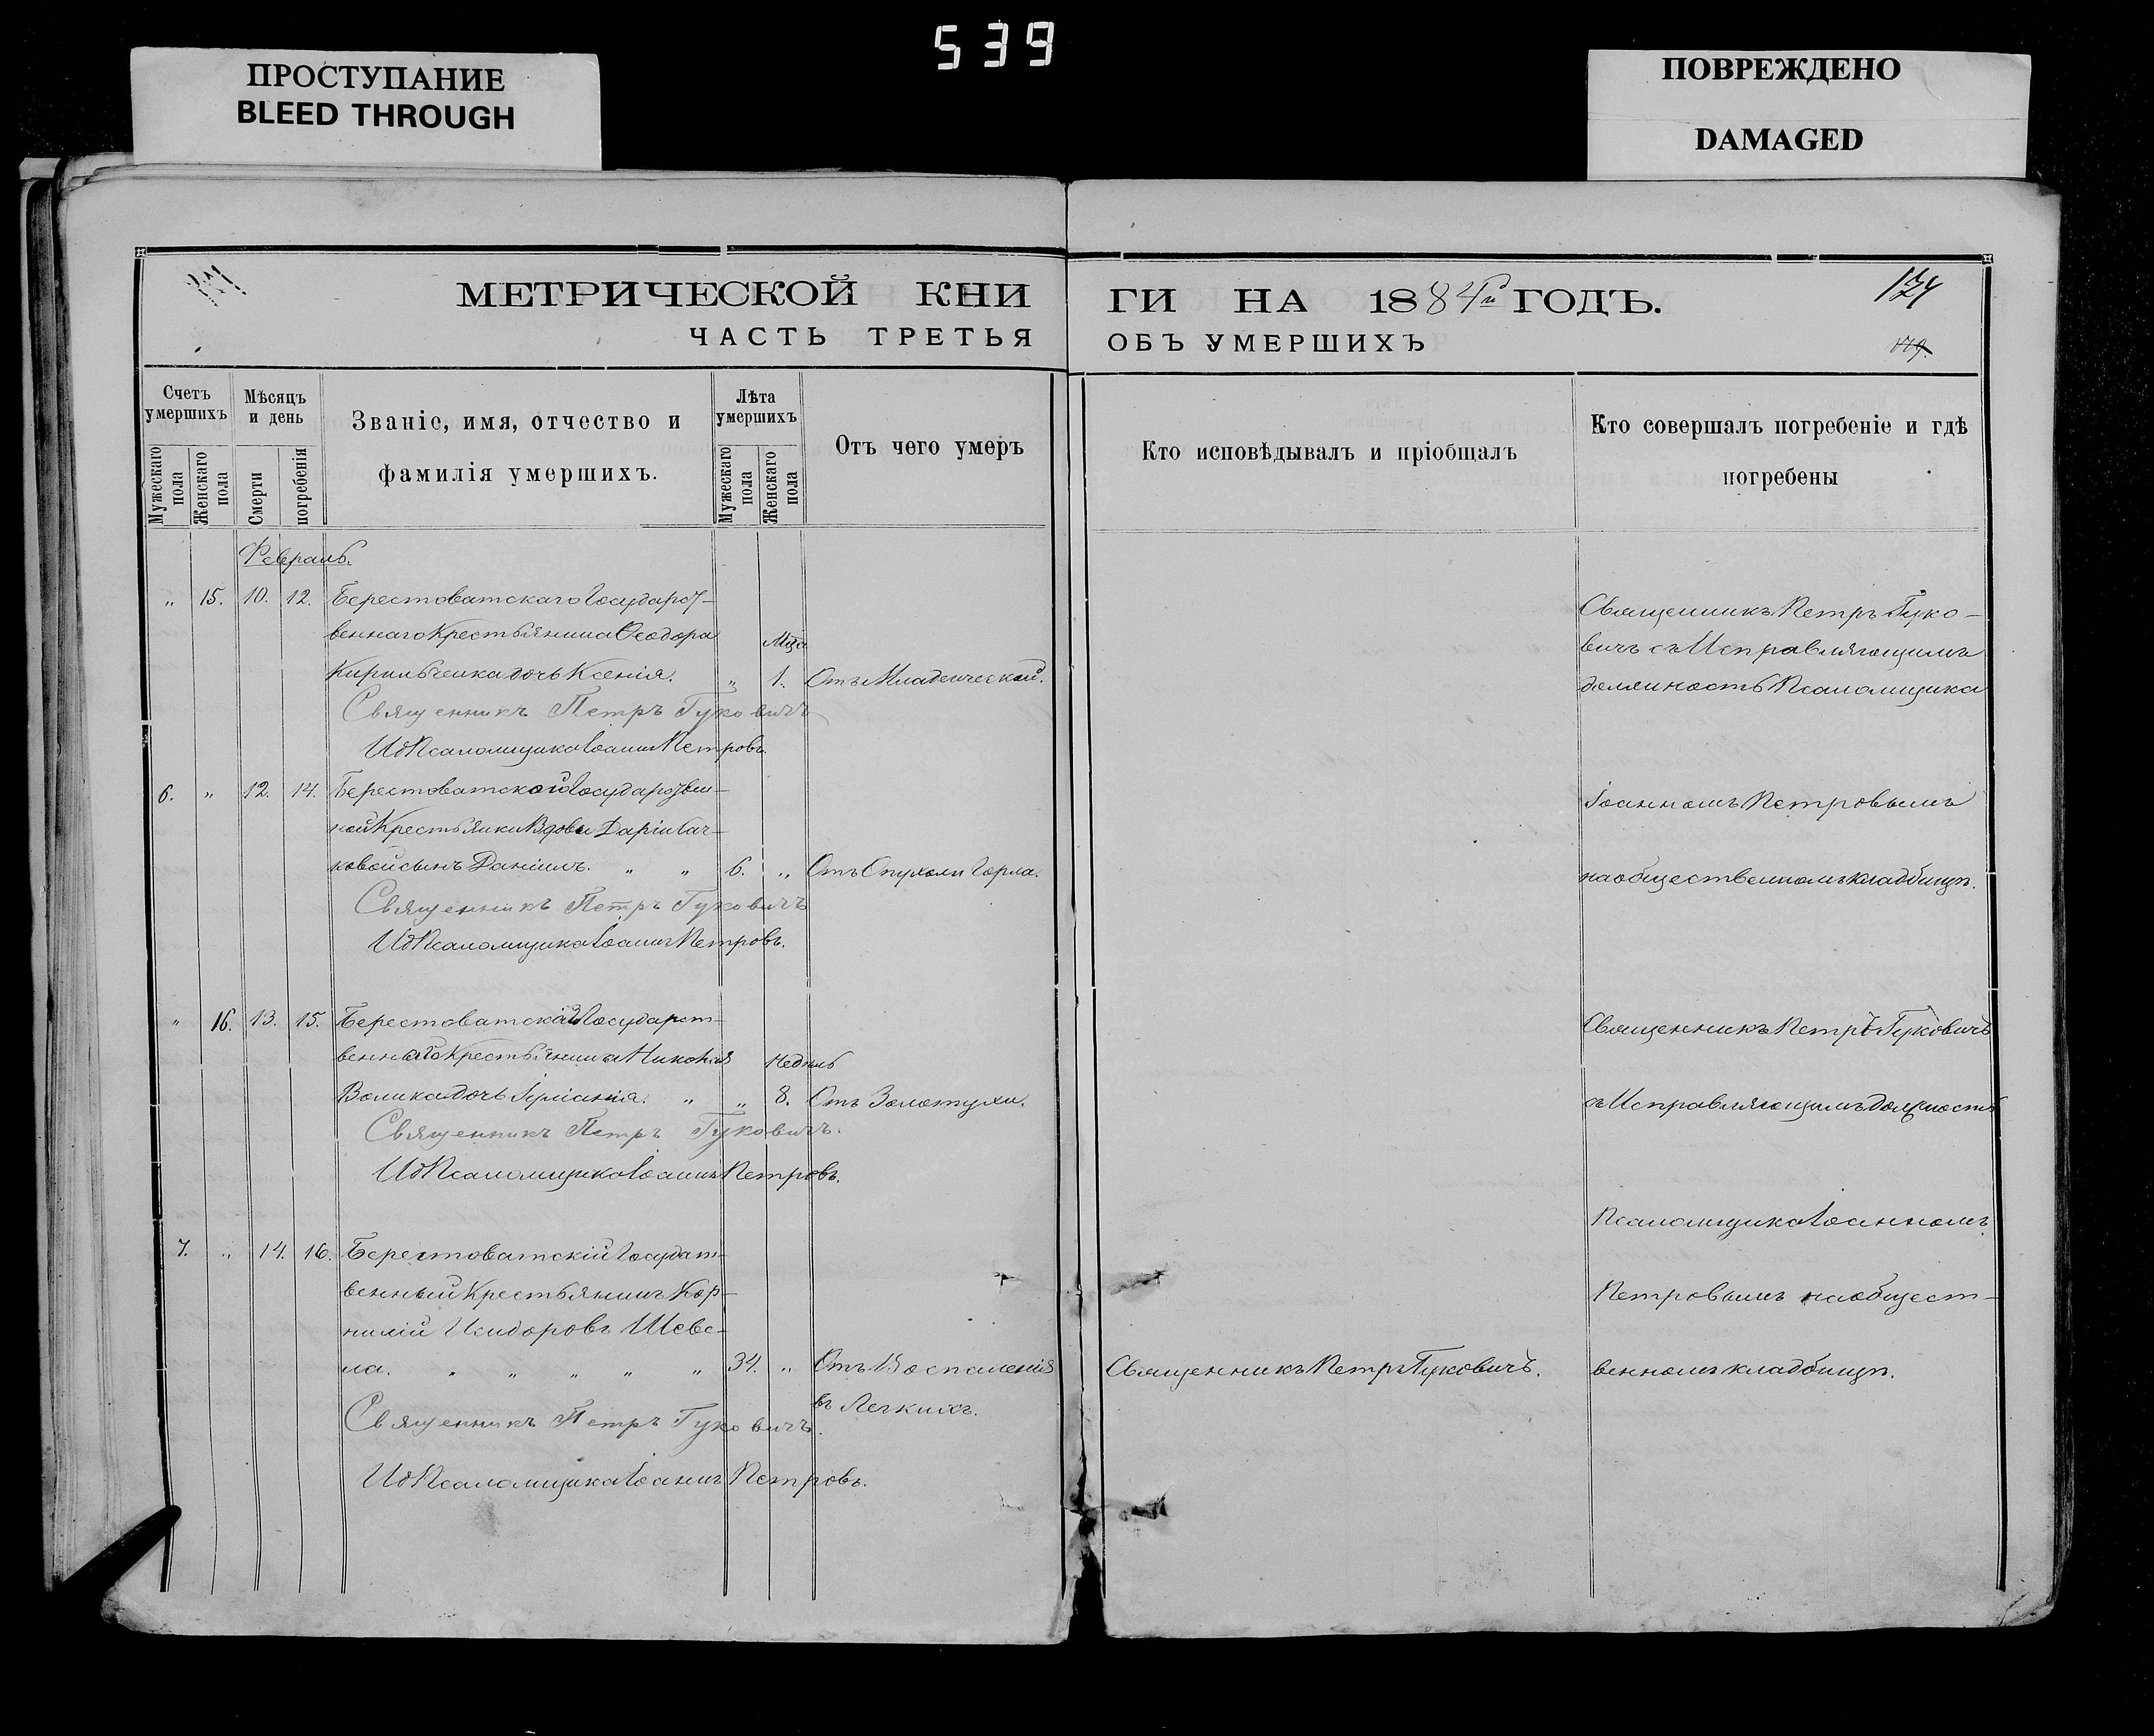 539
ПРОСТУПАНИЕ
BLEED THROUGH
ПОВРЕЖДЕНО
DAMAGED
МЕТРИЧЕСКОЙ КНИ
ГИ НА 1884й ГОДЪ.
ЧАСТЬ ТРЕТЬЯ
ОБЪ УМЕРШИХЪ
174
179.
Счетъ умершихъ
Мужескаго пола
Женскаго пола
Мѣсяцъ и день
Смерти
погребенія
Званіе, имя, отчество и
фамилія умершихъ.
Лѣта умершихъ
Мужескаго пола
Женскаго пола
Отъ чего умеръ
Кто исповѣдывалъ и пріобщалъ
Кто совершалъ погребеніе и гдѣ
погребены
Февраль.
" 15. 10. 12. Берестоватскаго Государст-
веннаго Крестьянина Ѳеодора
Мца
Кирильченка дочь Ксенія. " 1. Отъ Младенческой.
Священникъ Петръ Гуковичъ
Ид Псаломщика Іоаннъ Петровъ.
Священникъ Петръ Гуко-
вичъ съ Исправляющимъ
должность Псаломщика
6. " 12. 14. Берестоватской Государствен-
ной Крестьянки Вдовы Даріи
ковой сынъ Даніилъ. " " 6. " Отъ Опухоли Горла.
Священникъ Петръ Гуковичъ
Ид Псаломщика Іоаннъ Петровъ.
Іоанномъ Петровымъ
на общественномъ кладбищѣ.
" 16. 13. 15. Берестоватскаго Государст-
веннаго Крестьянина Николая
Недѣль
Волика дочь " " 8. Отъ Золотухи.
Священникъ Петръ Гуковичъ.
Ид Псаломщика Іоаннъ Петровъ.
Священникъ Петръ Гуковичъ
съ Исправляющимъ должность
Псаломщика Іоанномъ
7. " 14. 16. Берестоватскій Государст-
венный Крестьянинъ Кор-
нилій Исидоровъ Шеве-
ла. " " " " " 34. " Отъ Воспаленія
въ Легкихъ.
Священникъ Петръ Гуковичъ.
Ид Псаломщика Іоаннъ Петровъ.
Священникъ Петръ Гуковичъ.
Петровымъ на общест-
венномъ кладбищѣ.